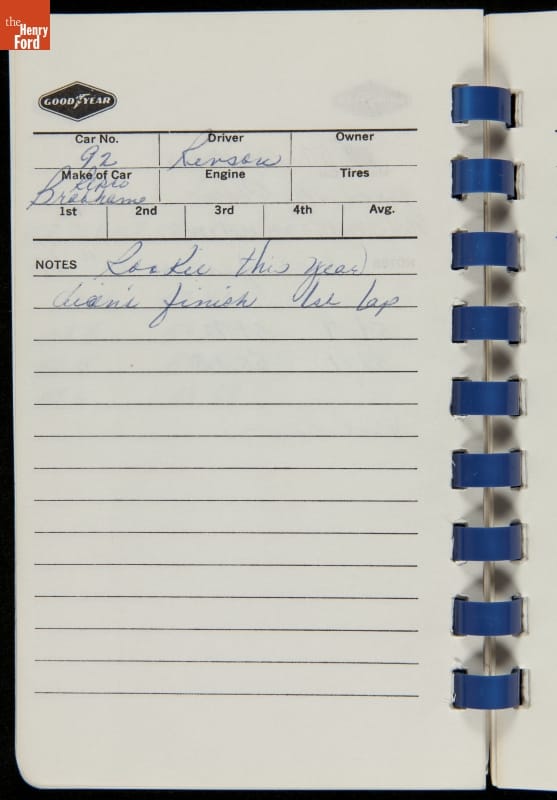 the
Henry
Ford
GOOD YEAR
Car No. Driver Owner
92 Revson
Make of Car Engine Tires
Repco
Brabham
1st 2nd 3rd 4th Avg.
NOTES Rookie this year
didn't finish 1st lap